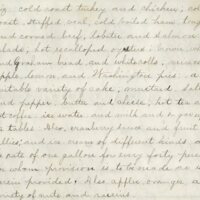 cold roast turkey and chicken, cold
roast, stuffed veal, cold boiled ham, tong
and corned beef, lobster and salmon
salads, hot escalloped oysters; brown, w
and Graham bread and white rolls, mince
apple, lemon and Washington pies; a
suitable variety of cake, mustard, sal
and pepper, butter and cheese, hot tea a
hot coffee, ice water, and milk and sugar
on tables. Also, cranberry sauce and fruit
jellies, and ice cream of different kinds, a
the rate of one gallon for every forty pers
for whom provision is to be made as
herein provided; & Also apple, oranges, a
variety of nuts and raisins.